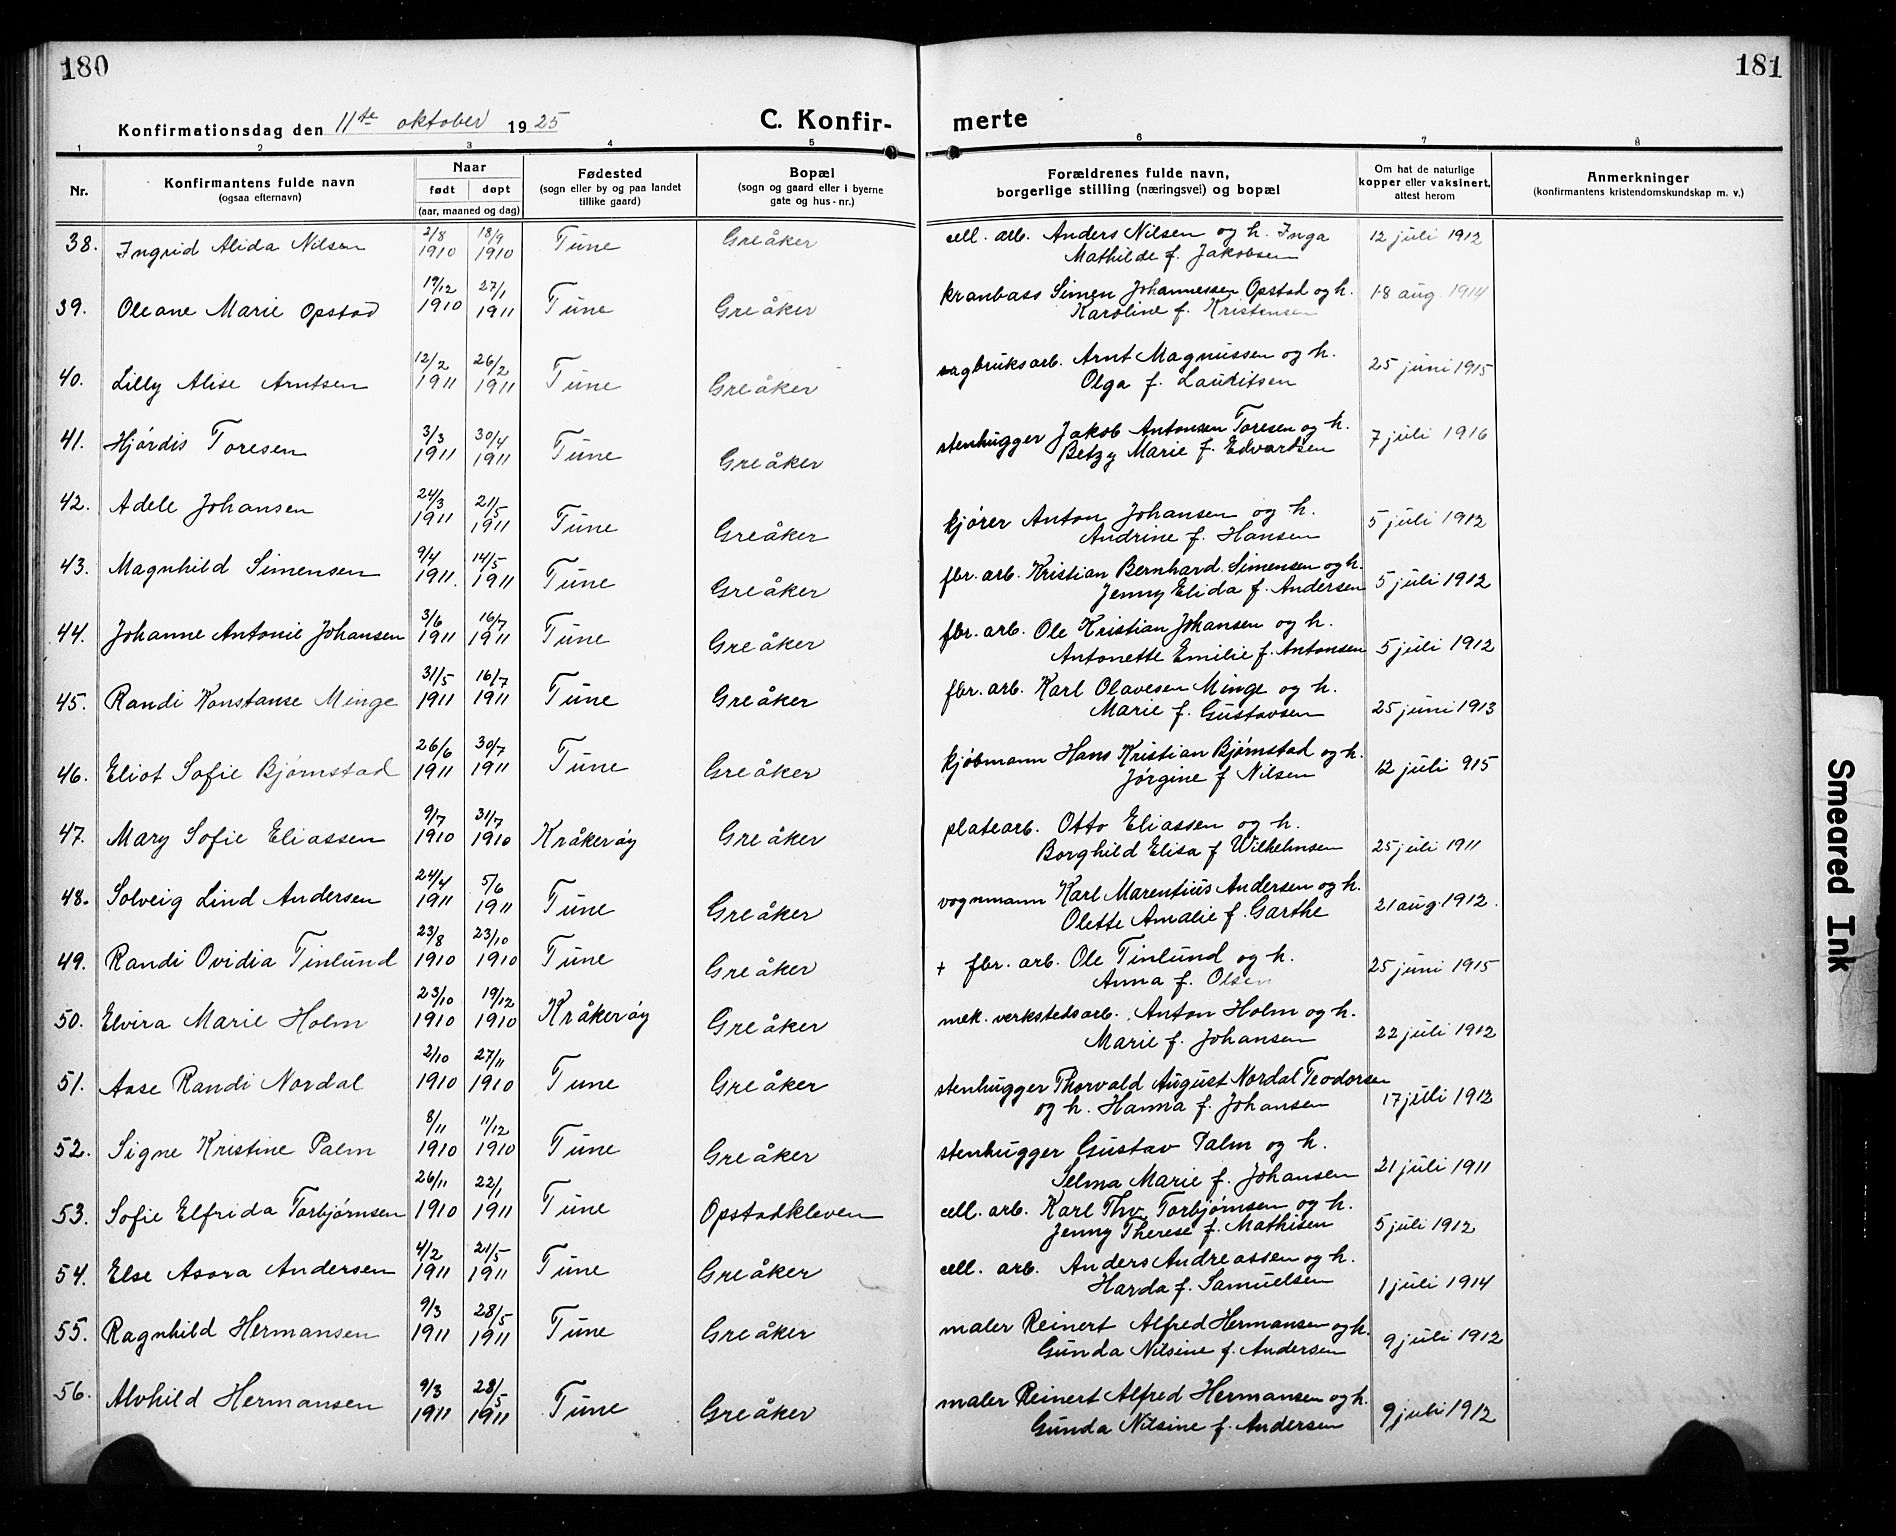 180
181
Konfirmationsdag den 11te oktober 1925
C. Konfir-
merte
1 2 3 4 5 6 7 8
Nr.
Konfirmantens fulde navn
(ogsaa efternavn)
Naar
født døpt
(aar, maaned og dag)
Fødested
(sogn eller by og paa landet
tillike gaard)
Bopæl
(sogn og gaard eller i byerne
gate og hus-nr.)
Forældrenes fulde navn,
borgerlige stilling (næringsvei) og bopæl
Om hat de naturlige
kopper eller vaksinert,
attest herom
Anmerkninger
(konfirmantens kristendomskundskap m. v.)
38. Ingrid Alida Nilsen 2/8 1910 18/9 1910 Tune Greåker cell. arb. Anders Nilsen og h. Inga 12 juli 1912
Mathilde f. Jakobsen
39. Oleane Marie Opstad 19/12 1910 27/1 1911 Tune Greåker kranbass Simen Johannessen Opstad og h. 18 aug. 1914
Karoline f. Kristensen
40. Lilly Alise Arntsen 12/2 1911 26/2 1911 Tune Greåker sagbruksarb. Arnt Magnussen og h. 25 juni 1915
Olga f. Lauritsen
41. Hjørdis Toresen 3/3 1911 30/4 1911 Tune Greåker stenhugger Jakob Antonsen Toresen og h. 7 juli 1916
Betzy Marie f. Edvardsen
42. Adele Johansen 24/3 1911 21/5 1911 Tune Greåker kjører Anton Johansen og h. 5 juli 1912
Andrine f. Hansen
43. Magnhild Simensen 9/4 1911. 14/5 1911 Tune Greåker fbr. arb. Kristian Bernhard Simensen og h. 5 juli 1912
Jenny Elida f. Andersen
44. Johanne Antonie Johansen 3/6 1911 16/7 1911 Tune Greåker fbr. arb. Ole Kristian Johansen og h. 5 juli 1912
Antonette Emilie f. Antonsen
45. Randi Konstanse Minge 31/5 1911 16/7 1911 Tune Greåker fbr. arb. Karl Olavesen Minge og h. 25 juni 1913
Marie f. Gustavsen
46. Eliot Sofie Bjørnstad 26/6 1911 30/7 1911 Tune Greåker kjøbmann Hans Kristian Bjørnstad og h. 12 juli 915
Jørgine f Nilsen
47. Mary Sofie Eliassen 9/7 1910 31/7 1910 Kråkerøy Greåker platearb. Otto Eliassen og h. 25 juli 1911
Borghild Elisa f Wilhelmsen
48. Solveig Lind Andersen 24/4 1911 5/6 1911 Tune Greåker vognmann Karl Marentius Andersen og h. 21 aug. 1912.
Olette Amalie f. Garthe
49. Randi Ovidia Tinlund 23/8 1910 23/10 1910 Tune Greåker + fbr. arb. Ole Tinlund og h. 25 juni 1915
Anna f. Olsen
50. Elvira Marie Holm 23/10 1910 19/12 1910 Kråkerøy Greåker mek. verkstedsarb. Anton Holm og h. 22 juli 1912
Marie f. Johansen
51. Aase Randi Nordal 2/10 1910 27/11 1910 Tune Greåker stenhugger Thorvald August Nordal Teodorsen 17 juli 1912
og h. Hanna f. Johansen
52. Signe Kristine Palm 8/11 1910 11/12 1910 Tune Greåker stenhugger Gustav Palm og h. 21 juli 1911
Selma Marie f. Johansen
53. Sofie Elfrida Torbjørnsen 26/11 1910 22/1 1911 Tune Opstadkleven cell. arb. Karl Thv. Torbjørnsen og h. 5 juli 1912
Jenny Therese f. Mathisen
54. Else Asora Andersen 4/2 1911 21/5 1911 Tune Greåker cell. arb. Anders Andreassen og h. 1 juli 1914
Harda f. Samuelsen
55. Ragnhild Hermansen 9/3 1911 28/5 1911 Tune Greåker maler Reinert Alfred Hermansen og h. 9 juli 1912
Gunda Nilsine f. Andersen
56. Alvhild Hermansen 9/3 1911 28/5 1911 Tune Greåker maler Reinert Alfred Hermansen og h. 9 juli 1912
Gunda Nilsine f. Andersen
Smeared Ink